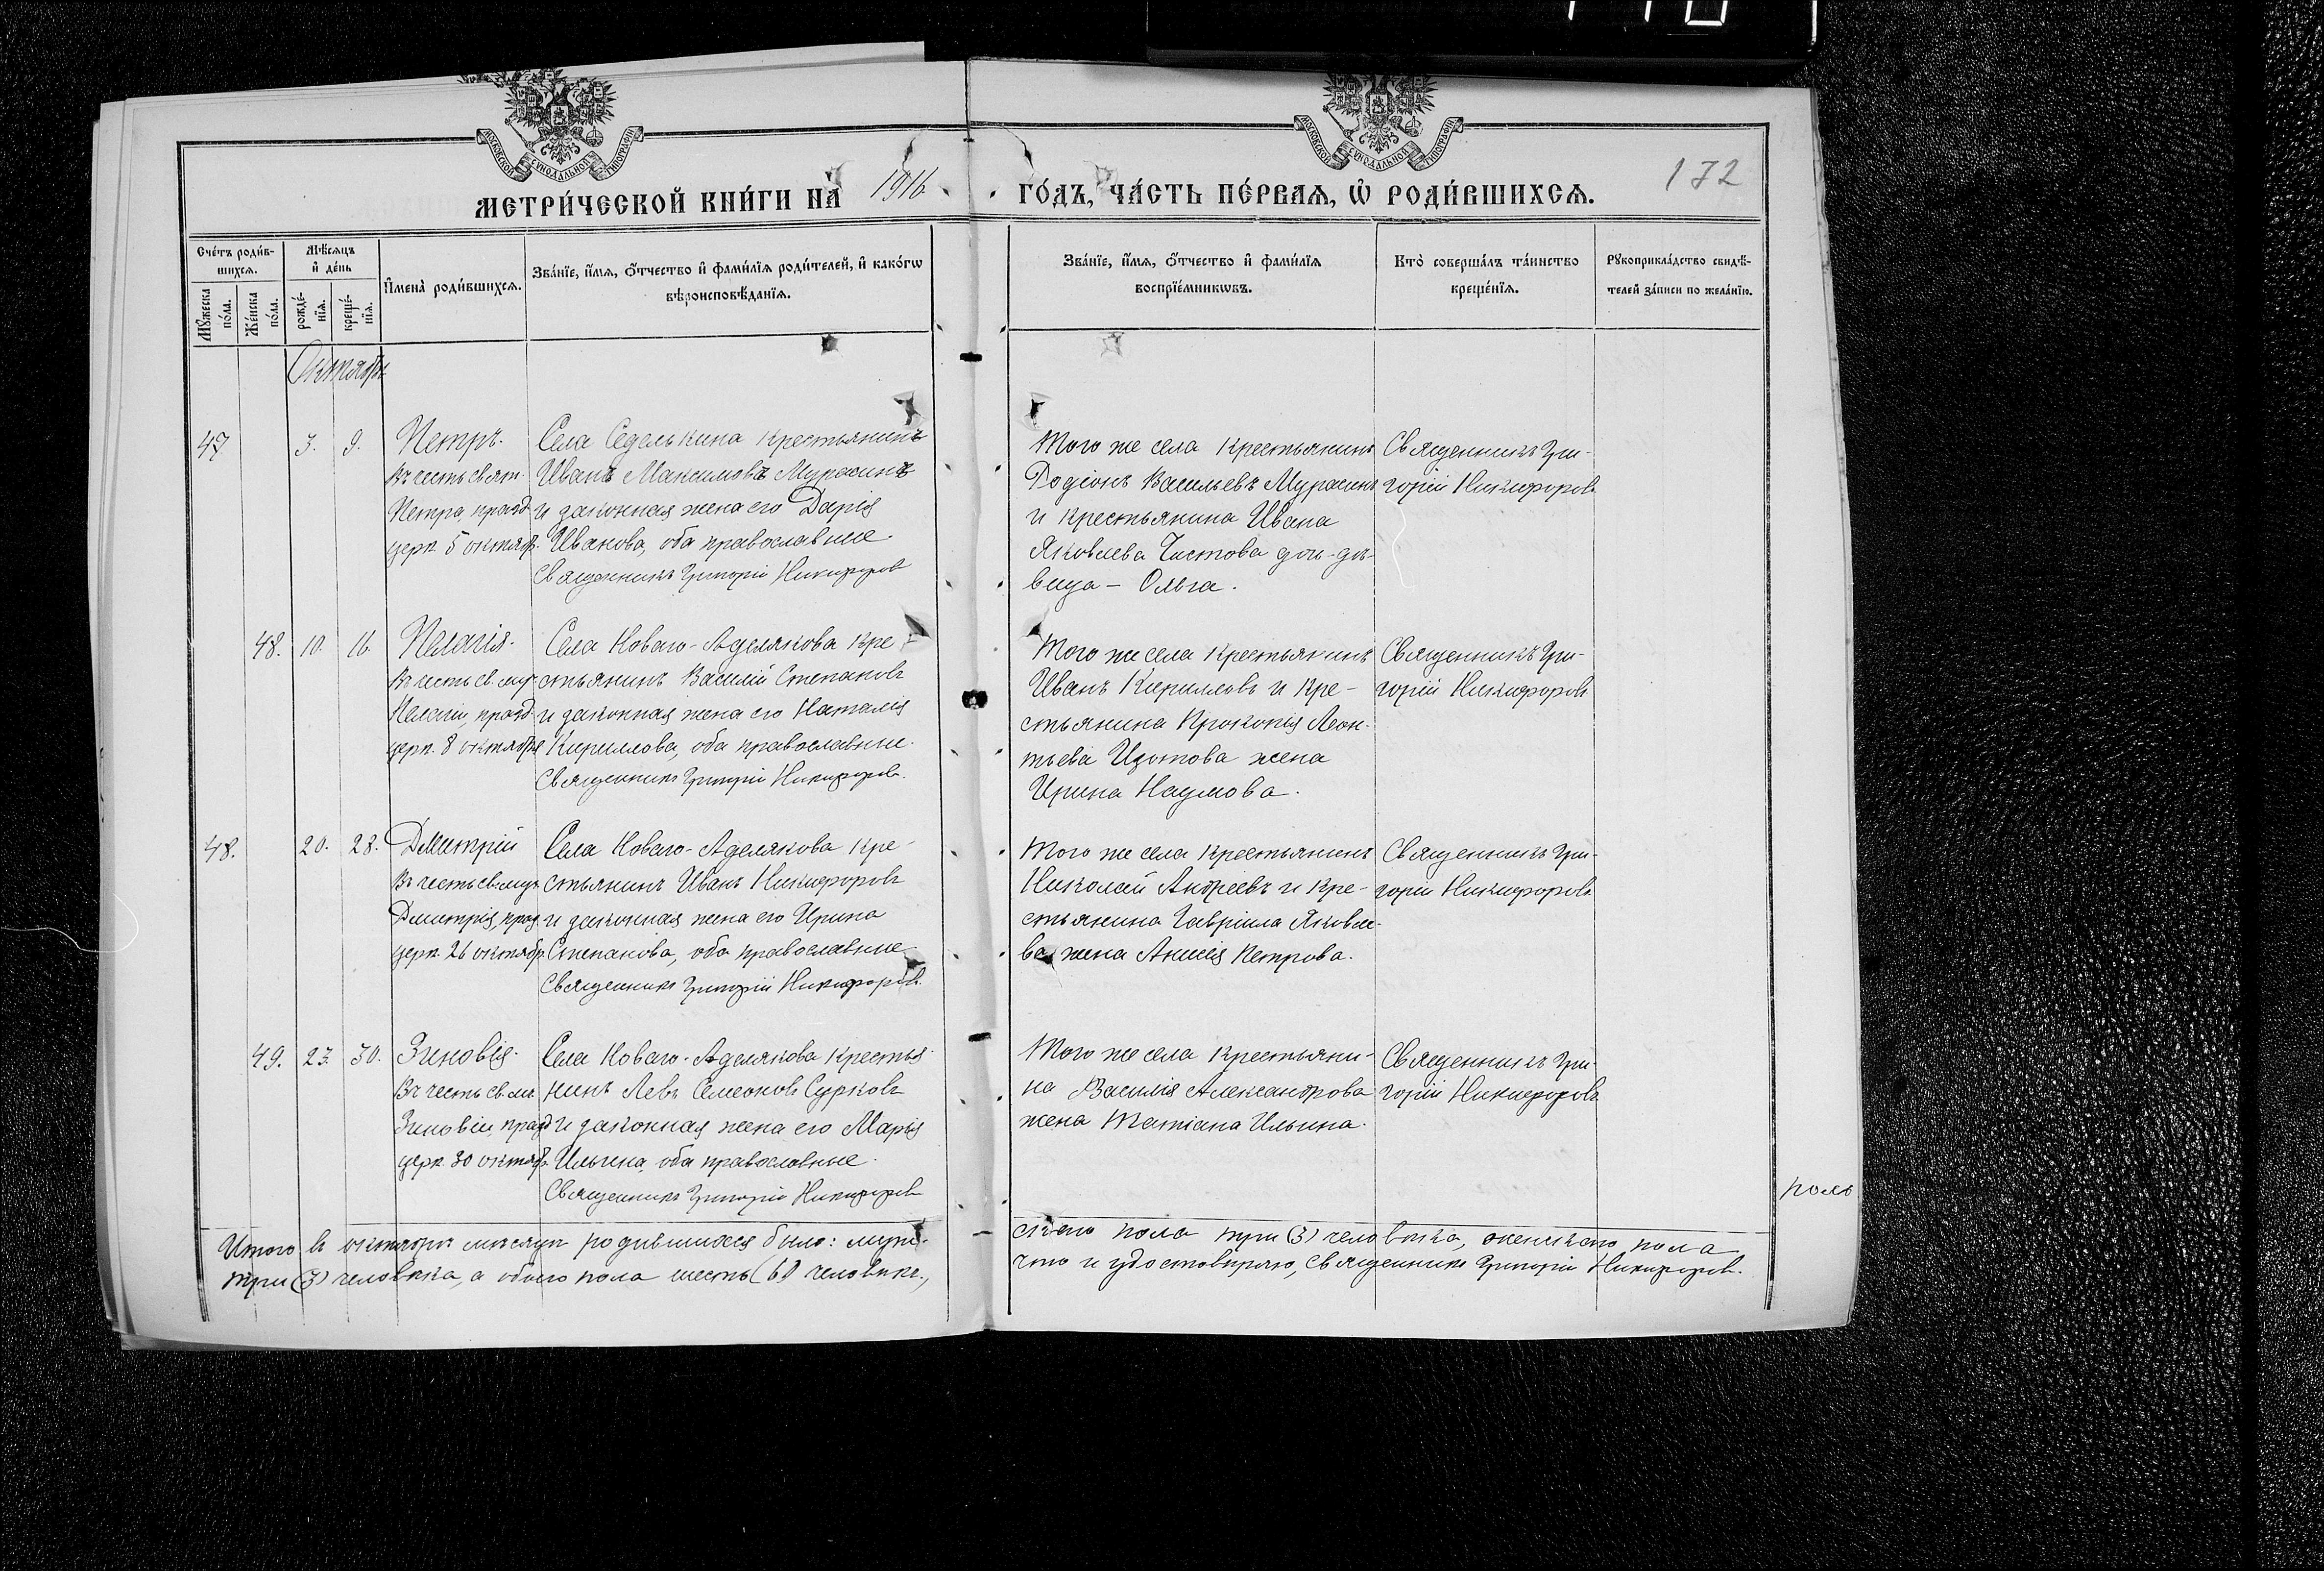 МОСКОВСКОЙ СѴНОДАЛЬНОЙ ТИПОГРАФІИ
МОСКОВСКОЙ СѴНОДАЛЬНОЙ ТИПОГРАФІИ
172
МЕТРИ́ЧЕСКОЙ КНИ́ГИ НА̀ 1916 ГО́ДЪ, ЧА́СТЬ ПЕ́РВАѦ, Ѽ РОДИ́ВШИХСѦ.
Сче́тъ роди́в-
шихсѧ.
Мѣ́сѧцъ
и҆ де́нь
Мꙋ́жеска по́ла.
Же́нска по́ла.
рожде́-
нїѧ.
креще́-
нїѧ.
И҆мена̀ роди́вшихсѧ.
Зва́нїе, и҆́мѧ, ѻ҆́тчество и҆ фами́лїѧ роди́телей, и҆ како́гѡ
вѣроисповѣ́данїѧ.
Зва́нїе, и҆́мѧ, ѻ҆́тчество и҆ фами́лїѧ
воспрїе́мникѡвъ.
Кто̀ соверша́лъ та́инство
креще́нїѧ.
Рꙋкоприкла́дство свидѣ́-
телей за́писи по жела́нїю.
Октябрь
47 3. 9. Петръ.
Въ честь свят.
Петра, празд.
церк. 5 октяб.
Села Седелькина крестьянинъ
Иванъ Максимовъ Мурасинъ
и законная жена его Дарія
Иванова, оба православные.
Священникъ Григорій Никифоровъ
Того же села крестьянинъ
Родіонъ Васильевъ Мурасинъ
и крестьянина Ивана
Яковлева Чистова дочь-дѣ-
вица - Ольга.
Священникъ Гри-
горій Никифоровъ
48. 10. 16. Пелагія.
Въ честь св. муч.
Пелагіи, празд.
церк. 8 октября
Села Новаго-Аделякова кре-
стьянинъ Василій Степановъ
и законная жена его Наталія
Кириллова, оба православные.
Священникъ Григорій Никифоровъ.
Того же села крестьянинъ
Иванъ Кирилловъ и кре-
стьянина Прокопія Леон-
тьева Изотова жена
Ирина Наумова.
Священникъ Гри-
горій Никифоровъ
48. 20. 28. Димитрій
Въ честь св. муч.
Димитрія, празд.
церк. 26 октябр.
Села Новаго-Аделякова кре-
стьянинъ Иванъ Никифоровъ
и законная жена его Ирина
Степанова, оба православные
Священникъ Григорій Никифоровъ.
Того же села крестьянинъ
Николай Андреевъ и кре-
стьянина Гавріила Яковле-
ва жена Анисія Петрова.
Священникъ Гри-
горій Никифоровъ.
49. 23. 30. Зиновія.
Въ честь св. м.
Зиновіи, празд.
церк. 30 октяб.
Села Новаго-Аделякова крестья-
нинъ Левъ Семеоновъ Сурковъ
и законная жена его Марія
Ильина, оба православные.
Священникъ Григорій Никифоровъ
Того же села крестьяни-
на Василія Александрова
жена Татіана Ильина.
Священникъ Гри-
горій Никифоровъ
поль
Итого въ октябрѣ мѣсяцѣ родившихся было: муж-
ского пола три (3) человѣка, женскаго пола
три (3) человѣка, а обоего пола шесть (6) человѣкъ,
что и удостовѣряю, Священникъ Григорій Никифоровъ.